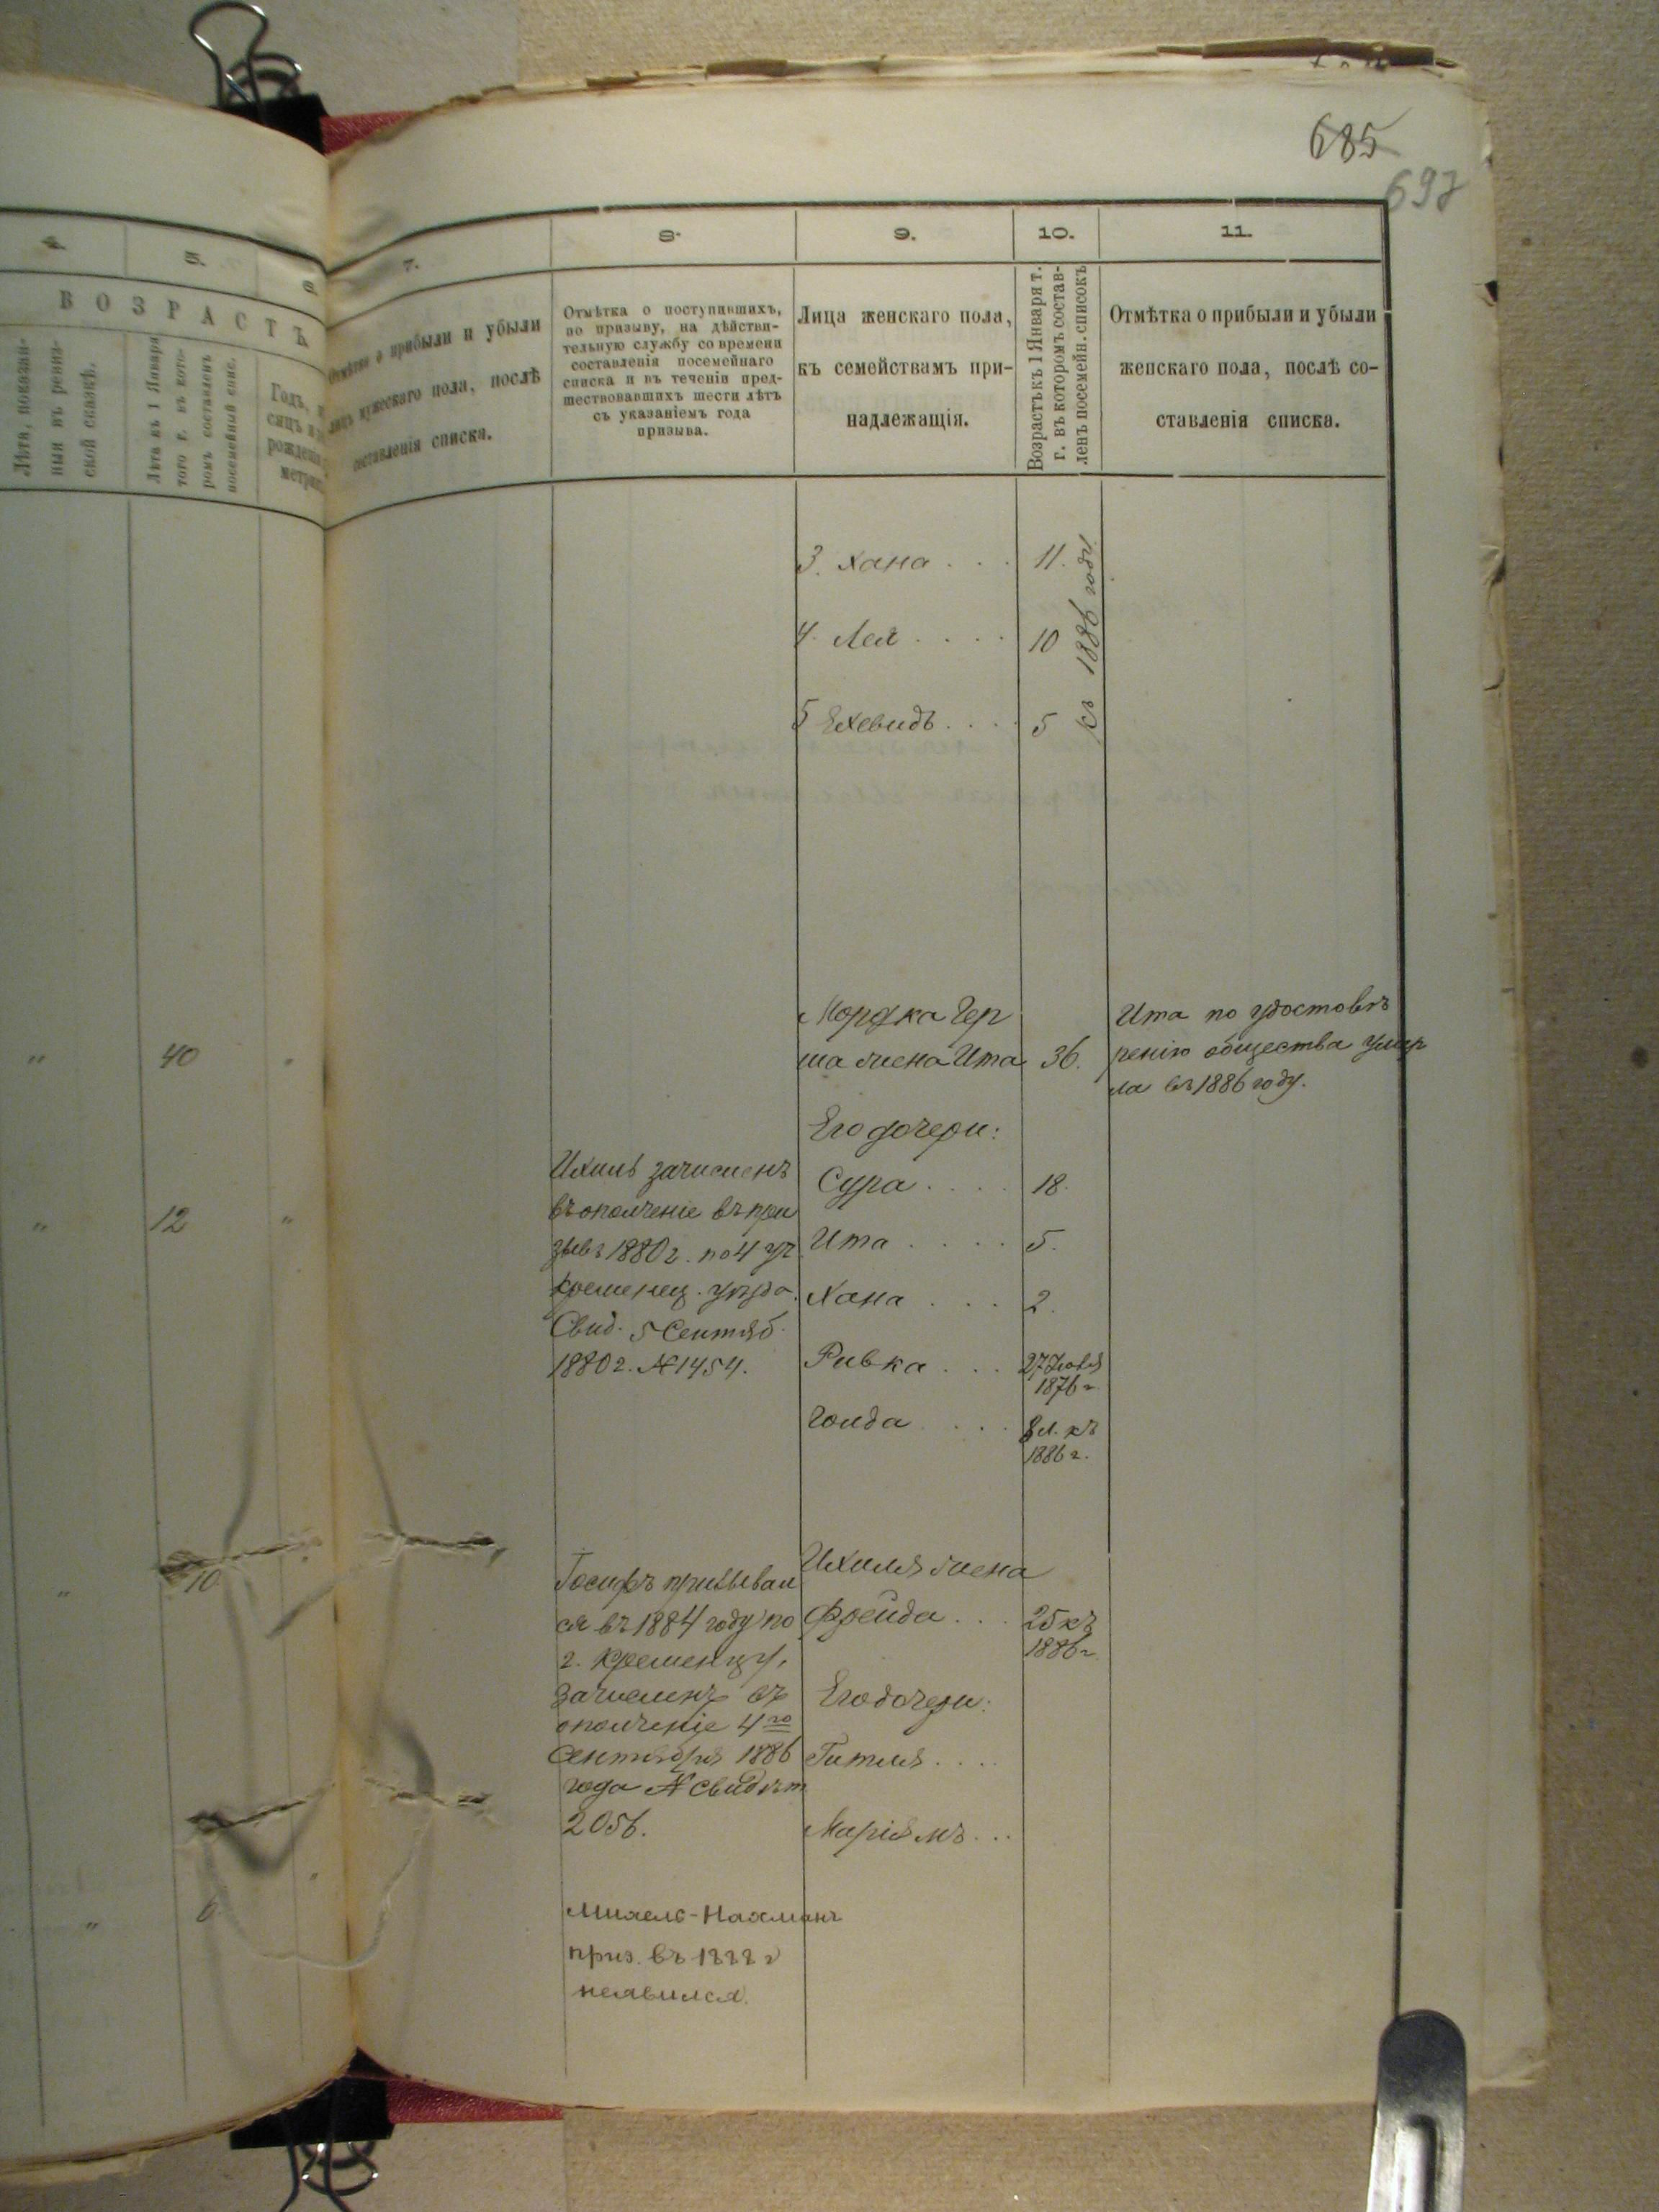 685
697
4.
5.
6.
7.
8.
9.
10.
11.
ВОЗРАСТЪ
Лѣта, показан-
ныя въ ревиз-
ской сказкѣ.
Лѣта къ 1 Января
того г. въ кото-
ромъ составленъ
посемейный спис.
Годъ,
сяцъ и
рожденія
метрик
Отмѣтка о прибыли и убыли
лицъ мужескаго пола, послѣ
составленія списка.
Отмѣтка о поступившихъ,
по призыву, на дѣйстви-
тельную службу со времени
составленія посемейнаго
списка и въ теченіи пред-
шествовавшихъ шести лѣтъ
съ указаніемъ года
призыва.
Лица женскаго пола,
къ семействамъ при-
надлежащія.
Возрастъ къ 1 Января т.
г. въ которомъ состав-
ленъ посемейн. списокъ
Отмѣтка о прибыли и убыли
женскаго пола, послѣ со-
ставленія списка.
3. Хана . . . 11.
4. Лея . . . . 10
5 Ехевидъ . . . . 5
къ 1886 году.
" 40 "
" 12 "
" 10
" 6 "
Ихиль зачисленъ
въ ополченіе въ при
зывъ 1880 г. по 4 уч
Кременец. уѣзда.
Свид. 5 Сентяб.
1880 г. № 1454.
Іосифъ призывал
ся въ 1884 году по
г. Кременцу,
зачисленъ въ
ополченіе 4го
Сентября 1886
года № свидѣт
2056.
Михель-Нахманъ
приз. въ 1888 г
неявился.
Мордка Гер
ша жена Ита 36.
Его дочери:
Сура . . . . 18.
Ита . . . . 5.
Хана . . . 2.
Ривка . . . 27
1876 г.
Голда . . . . 8 л. къ
1886 г.
Ихиля жена
Фрейда . . . 25 къ
1886 г.
Его дочери:
Гитля . . . .
Маріямъ . . .
Ита по удостовѣ
ренію общества умер
ла въ 1886 году.